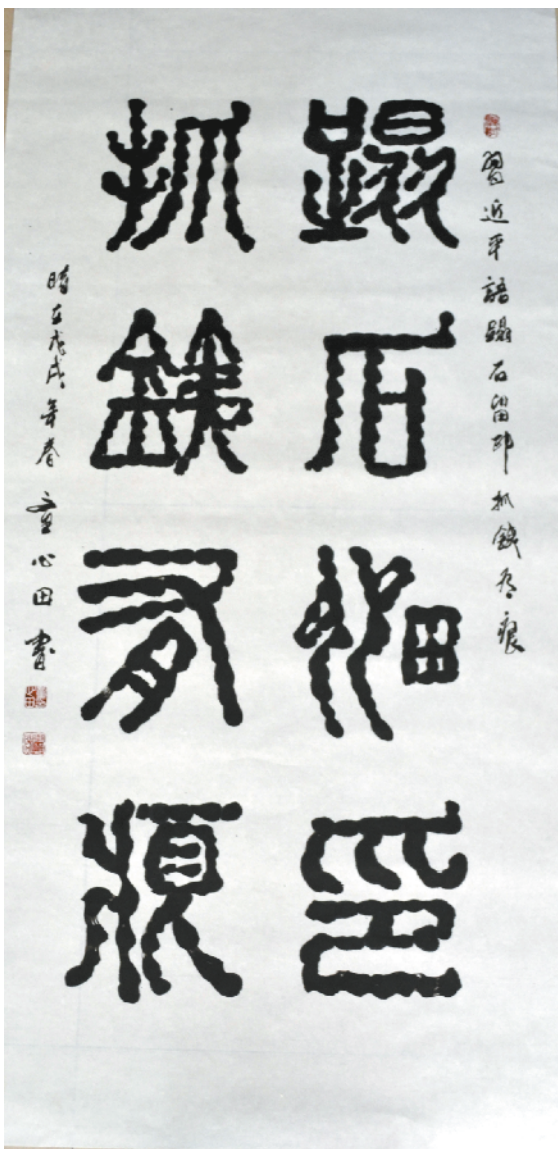 习近平语踏石留印抓铁有痕
踏石留印
抓鐵有痕
時在戊戌年春童心田書